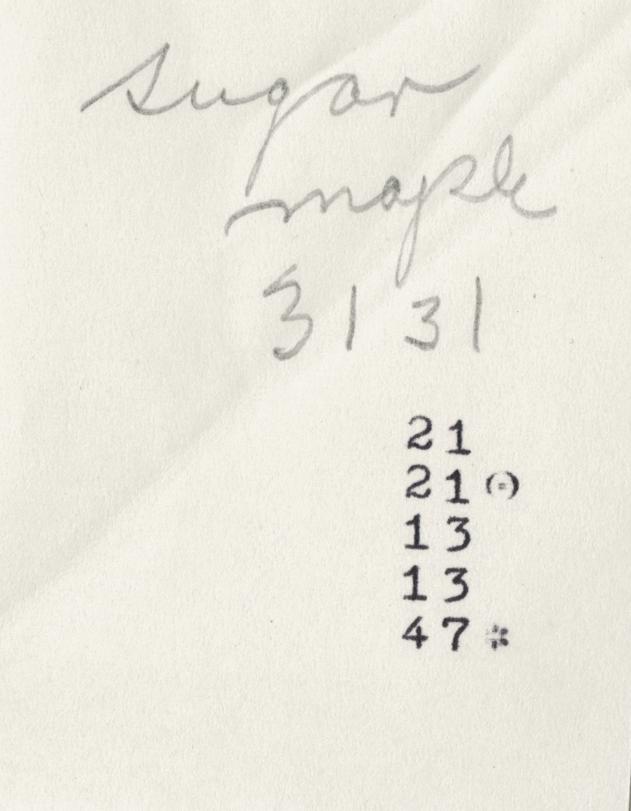 sugar
maple
31 31
21
21 (-)
13
13
47 *